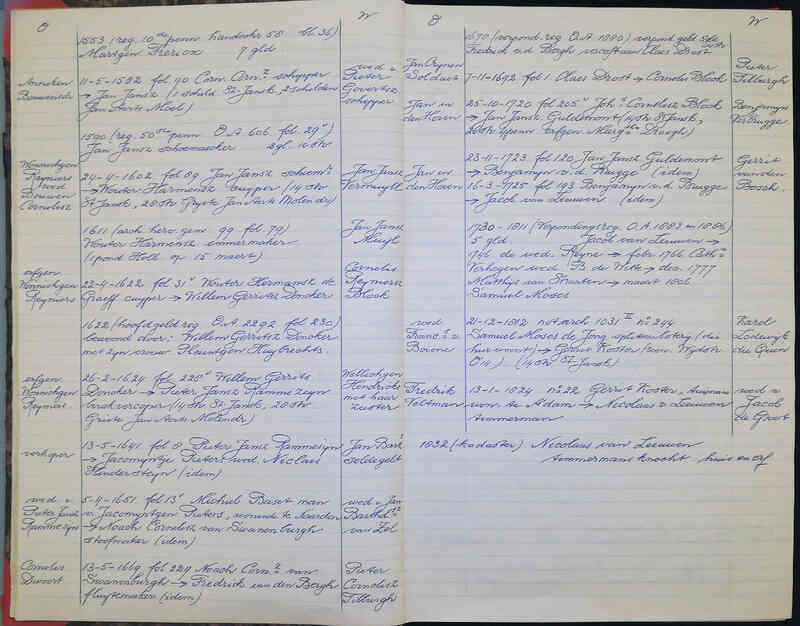 O
W
1553 (reg. 10de penn. handschr 58 bl. 36)
Martgen 7 gld
Anneken
11-5-1582 fol 90 Corn. Arnsz schipper
→ Jan Jansz (1 schuld St. Jansk, 2 schulden
Jan Aerts Moel)
wed v
Pieter
Govertsz
schipper
1590 (reg. 50ste penn O.A 606 fol. 29v)
Jan Jansz schoemaecker
Wennichgen
Reyniers
wed
Bouwen
Cornelisz
24-4-1602 fol 89 Jan Jansz schoenm
→ Wouter Harmensz cuyper (14 stv
St Jansk, 28 stv Griete Jan Aerts Molendr)
Jan Jansz
Vermuyll
1611 (arch herv. gem 99 fol. 79)
Wouter Harmensz emmermaker
(1 pond Holl op 15 maert)
Jan Jansz
Muyl
erfgen.
Wennichgen
Reyniers
22-4-1622 fol 31v Wouter Hermansz de
Graeff cuyper → Willem Gerritsz Doncker
Cornelis
Reyniersz
Block
1622 (hoofdgeld reg O.A 2292 fol 230)
bewoond door: Willem Gerritsz Doncker
met zyn vrouw Pleuntgen Huybrechts
erfgen.
Wennichgen
Reyniers
26-2-1624 fol 228v Willem Gerrits
Doncker → Pieter Jansz Rammezeyn
(14 stv St. Jansk, 28 stv
Griete Jan Aerts Molendr)
Wellichgen
Hendricks
met haar
zuster
verkoper
13-5-1641 fol 8 Pieter Jansz Rammeseyn
→ Jacomyntje Pieters wed. Niclaes
(idem)
Jan Bast
soldegelt
wed v
Pieter Jansz
Rammezyn
5-4-1651 fol 13v Michiel Baset man
v. Jacomyntgen Pieters, wonende te Naarden
→ Noach Cornelisz van Swanenburgh
stoofmaker (idem)
wed v Jan
van Zel
Cornelis
Swoort
13-5-1669 fol 229 Noach Cornsz van
Swaanenburgh → Fredrik van den Bergh
fluytemaker (idem)
Pieter
Cornelisz
Tilburgh
O
W
1670 (verpond. reg O.A 1880) verpond. geld
Fredrik v.d Bergh nu Claes Drost
Jan Crynen
Soldaet
7-11-1692 fol 1. Claes Drost → Cornelis Block
Pieter
Tilburgh
Jan in
den Haven
25-10-1720 fol 205v Joh. Cornelisz Block
→ Jan Jansz Guldemont (14 stv St Jansk,
28 stv erfgen. Drogh)
Benjamyn
Verbrugge
Jan in
den Haven
23-11-1723 fol 120 Jan Jansz Guldemont
→ Benjamyn v.d. Brugge (idem)
16-3-1725 fol 193 Benjamyn v.d Brugge
→ Jacob van Leeuwen (idem)
Gerrit
van den
Bosch
1730-1811 (Verpondingsreg. O.A. 1883 en 1886)
5 gld Jacob van Leeuwen →
1746 de wed. Reyne → febr. 1766 Cath.
Verhagen wed B. de Witte → dec. 1777
Matthys van Straaten → maart 1806
Samuel Moses
wed
Franc. v
Boione
21-12-1812 not. arch 1031 II no 244
Samuel Moses de Jong opticien loterij (die
huis woont) → Gerrit Koster (won. Wydstr
O 14) (14 stv St. Jansk)
Karel
Lodewyk
du Quen
Fredrik
Veltman
13-1-1824 no 22 Gerrit Koster, timmerm
won. te A'dam → Nicolaas v Leeuwen
timmerman
wed v
Jacob
de Groot
1832 (kadaster) Nicolaas van Leeuwen
timmermans knecht huis en erf